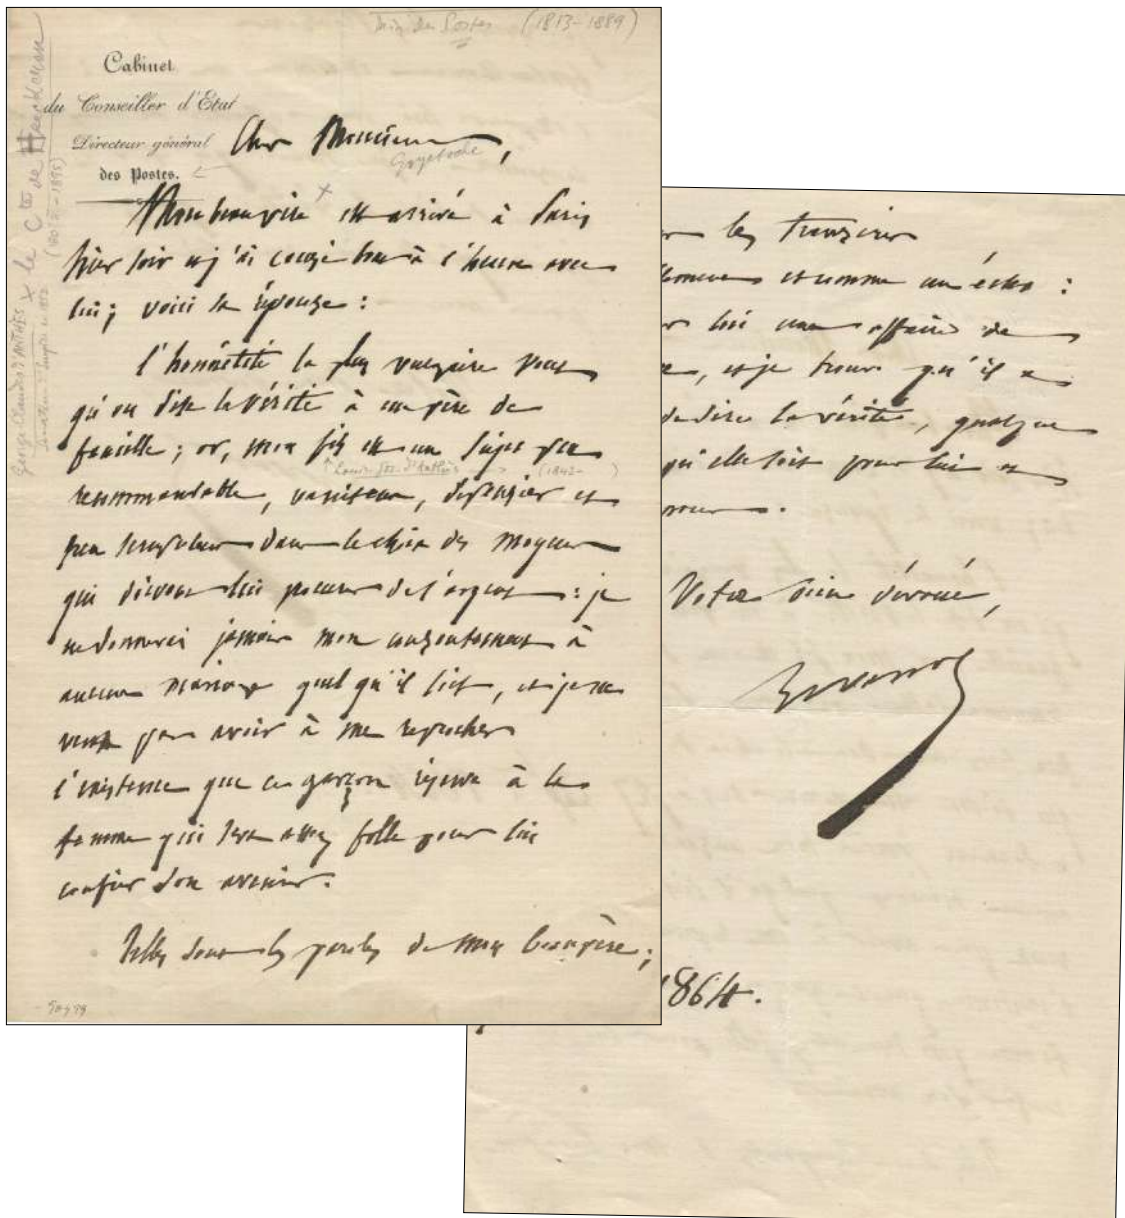 Min des Postes (1813-1889)
Cabinet
du Conseiller d'Etat
Directeur général
des Postes.
Cher Monsieur,
Mon beaupère est arrivé à Paris
hier soir et j'ai causé tout à l'heure avec
lui; voici sa réponse:
l'honnêteté la plus vulgaire veut
qu'on dise la vérité à un père de
famille; or, mon fils est un sujet peu
Louis Jos. d'Anthès (1842- )
recommandable, vaniteux, dépensier et
peu scrupuleux dans le choix des moyens
qui doivent lui procurer de l'argent: je
ne donnerai jamais mon consentement à
aucun mariage quel qu'il soit, et je ne
veux pas avoir à me reprocher
l'existence que ce garçon réserve à la
femme qui sera assez folle pour lui
confier son avenir.
Telles sont les paroles de mon beaupère;
George Claude d'ANTHÈS x le Cte de Heeckeren
(-1895)
les transcris
et comme un écho:
lui une affaire de
et je trouve qu'il a
de dire la vérité, quelque
qu'elle soit pour lui et
nous.
Votre bien dévoué,
1864.